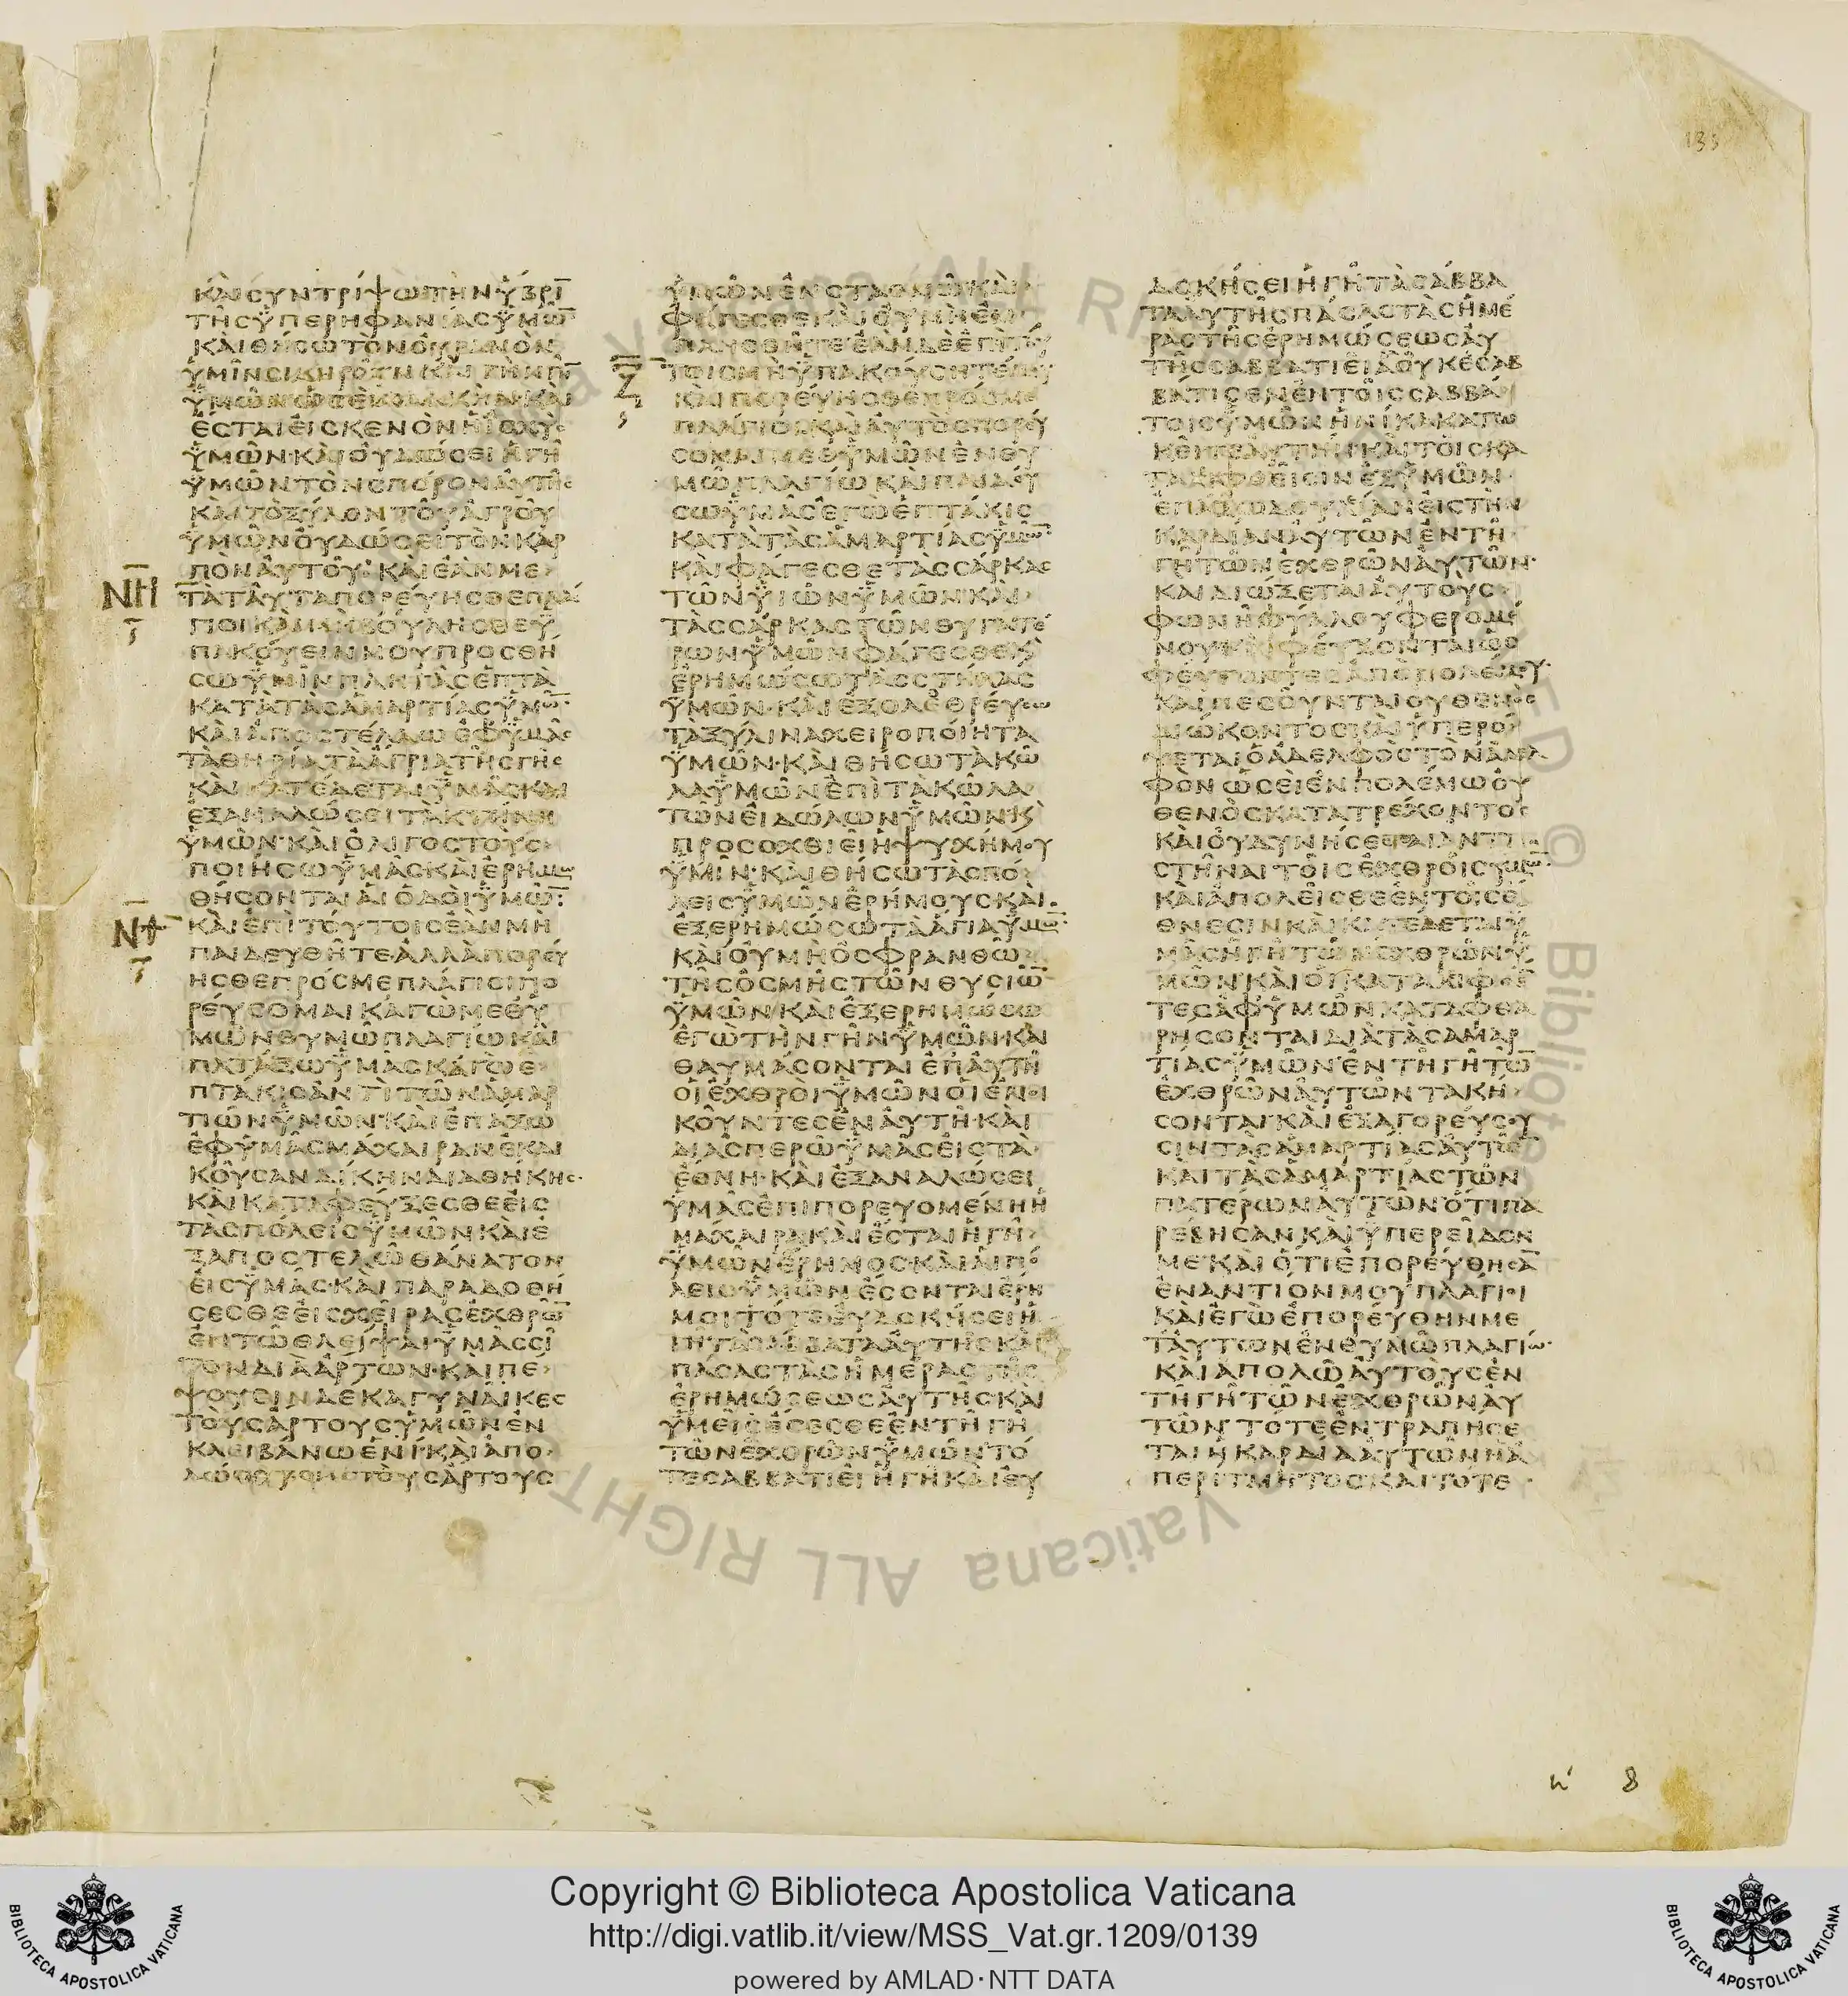 135
ΚΑΙ ΣΥΝΤΡΙΨΩ ΤΗΝ ΥΒΡΙ̅
ΤΗΣ ΥΠΕΡΗΦΑΝΙΑΣ ΥΜΩ̅
ΚΑΙ ΘΗΣΩ ΤΟΝ ΟΥΡΑΝΟΝ
ΥΜΙΝ ΣΙΔΗΡΟΥΝ ΚΑΙ ΤΗΝ ΓΗ̅
ΥΜΩΝ ΩΣΕΙ ΧΑΛΚΗΝ ΚΑΙ
ΕΣΤΑΙ ΕΙΣ ΚΕΝΟΝ Η ΙΣΧΥΣ
ΥΜΩΝ· ΚΑΙ ΟΥ ΔΩΣΕΙ Η ΓΗ
ΥΜΩΝ ΤΟΝ ΣΠΟΡΟΝ ΑΥΤΗΣ
ΚΑΙ ΤΟ ΞΥΛΟΝ ΤΟΥ ΑΓΡΟΥ
ΥΜΩΝ ΟΥ ΔΩΣΕΙ ΤΟΝ ΚΑΡ
ΠΟΝ ΑΥΤΟΥ· ΚΑΙ ΕΑΝ ΜΕ
ΝΗ ΤΑ ΤΑΥΤΑ ΠΟΡΕΥΗΣΘΕ ΠΛΑ
ΓΙΟΙ ΚΑΙ ΜΗ ΒΟΥΛΗΣΘΕ Υ
ΠΑΚΟΥΕΙΝ ΜΟΥ ΠΡΟΣΘΗ
ΣΩ ΥΜΙΝ ΠΛΗΓΑΣ ΕΠΤΑ
ΚΑΤΑ ΤΑΣ ΑΜΑΡΤΙΑΣ ΥΜΩ̅·
ΚΑΙ ΑΠΟΣΤΕΛΛΩ ΕΦ ΥΜΑΣ
ΤΑ ΘΗΡΙΑ ΤΑ ΑΓΡΙΑ ΤΗΣ ΓΗΣ
ΚΑΙ ΚΑΤΕΔΕΤΑΙ ΥΜΑΣ ΚΑΙ
ΕΞΑΝΑΛΩΣΕΙ ΤΑ ΚΤΗΝΗ
ΥΜΩΝ· ΚΑΙ ΟΛΙΓΟΣΤΟΥΣ
ΠΟΙΗΣΩ ΥΜΑΣ ΚΑΙ ΕΡΗΜΩ
ΘΗΣΟΝΤΑΙ ΑΙ ΟΔΟΙ ΥΜΩ̅·
ΝΘ ΚΑΙ ΕΠΙ ΤΟΥΤΟΙΣ ΕΑΝ ΜΗ
ΠΑΙΔΕΥΘΗΤΕ ΑΛΛΑ ΠΟΡΕΥ
ΗΣΘΕ ΠΡΟΣ ΜΕ ΠΛΑΓΙΟΙ ΠΟ
ΡΕΥΣΟΜΑΙ ΚΑΓΩ ΜΕΘ Υ
ΜΩΝ ΘΥΜΩ ΠΛΑΓΙΩ ΚΑΙ
ΠΑΤΑΞΩ ΥΜΑΣ ΚΑΓΩ Ε
ΠΤΑΚΙΣ ΑΝΤΙ ΤΩΝ ΑΜΑΡ
ΤΙΩΝ ΥΜΩΝ· ΚΑΙ ΕΠΑΞΩ
ΕΦ ΥΜΑΣ ΜΑΧΑΙΡΑΝ ΕΚΔΙ
ΚΟΥΣΑΝ ΔΙΚΗΝ ΔΙΑΘΗΚΗΣ·
ΚΑΙ ΚΑΤΑΦΕΥΞΕΣΘΕ ΕΙΣ
ΤΑΣ ΠΟΛΕΙΣ ΥΜΩΝ ΚΑΙ Ε
ΞΑΠΟΣΤΕΛΩ ΘΑΝΑΤΟΝ
ΕΙΣ ΥΜΑΣ· ΚΑΙ ΠΑΡΑΔΟΘΗ
ΣΕΣΘΕ ΕΙΣ ΧΕΙΡΑΣ ΕΧΘΡΩ̅
ΕΝ ΤΩ ΘΛΕΙΨΑΙ ΥΜΑΣ ΣΙ
ΤΟΔΙΑ ΑΡΤΩΝ· ΚΑΙ ΠΕ
ΨΟΥΣΙΝ ΔΕΚΑ ΓΥΝΑΙΚΕΣ
ΤΟΥΣ ΑΡΤΟΥΣ ΥΜΩΝ ΕΝ
ΚΛΕΙΒΑΝΩ ΕΝΙ· ΚΑΙ ΑΠΟ
ΔΩΣΟΥΣΙ ΤΟΥΣ ΑΡΤΟΥΣ
ΥΜΩΝ ΕΝ ΣΤΑΘΜΩ ΚΑΙ
ΦΑΓΕΣΘΕ ΚΑΙ ΟΥ ΜΗ ΕΜ
ΠΛΗΣΘΗΤΕ ΕΑΝ ΔΕ ΕΠΙ ΤΟΥ
Ξ ΤΟΙΣ ΜΗ ΥΠΑΚΟΥΣΗΤΕ ΜΟΥ
ΚΑΙ ΠΟΡΕΥΗΣΘΕ ΠΡΟΣ ΜΕ
ΠΛΑΓΙΟΙ ΚΑΙ ΑΥΤΟΣ ΠΟΡΕΥ
ΣΟΜΑΙ ΜΕΘ ΥΜΩΝ ΕΝ ΘΥ
ΜΩ ΠΛΑΓΙΩ ΚΑΙ ΠΑΙΔΕΥ
ΣΩ ΥΜΑΣ ΕΓΩ ΕΠΤΑΚΙΣ
ΚΑΤΑ ΤΑΣ ΑΜΑΡΤΙΑΣ ΥΜΩ̅·
ΚΑΙ ΦΑΓΕΣΘΕ ΤΑΣ ΣΑΡΚΑΣ
ΤΩΝ ΥΙΩΝ ΥΜΩΝ· ΚΑΙ
ΤΑΣ ΣΑΡΚΑΣ ΤΩΝ ΘΥΓΑΤΕ
ΡΩΝ ΥΜΩΝ ΦΑΓΕΣΘΕ Κ
ΕΡΗΜΩΣΩ ΤΑΣ ΣΤΗΛΑΣ
ΥΜΩΝ· ΚΑΙ ΕΞΟΛΕΘΡΕΥΣΩ
ΤΑ ΞΥΛΙΝΑ ΧΕΙΡΟΠΟΙΗΤΑ
ΥΜΩΝ· ΚΑΙ ΘΗΣΩ ΤΑ ΚΩ
ΛΑ ΥΜΩΝ ΕΠΙ ΤΑ ΚΩΛΑ
ΤΩΝ ΕΙΔΩΛΩΝ ΥΜΩΝ· Κ
ΠΡΟΣΟΧΘΙΕΙ Η ΨΥΧΗ ΜΟΥ
ΥΜΙΝ· ΚΑΙ ΘΗΣΩ ΤΑΣ ΠΟ
ΛΕΙΣ ΥΜΩΝ ΕΡΗΜΟΥΣ ΚΑΙ
ΕΞΕΡΗΜΩΣΩ ΤΑ ΑΓΙΑ ΥΜΩ̅·
ΚΑΙ ΟΥ ΜΗ ΟΣΦΡΑΝΘΩ
ΤΗΣ ΟΣΜΗΣ ΤΩΝ ΘΥΣΙΩ̅
ΥΜΩΝ ΚΑΙ ΕΞΕΡΗΜΩΣΩ
ΕΓΩ ΤΗΝ ΓΗΝ ΥΜΩΝ· ΚΑΙ
ΘΑΥΜΑΣΟΝΤΑΙ ΕΠ ΑΥΤΗ
ΟΙ ΕΧΘΡΟΙ ΥΜΩΝ ΟΙ ΕΝΟΙ
ΚΟΥΝΤΕΣ ΕΝ ΑΥΤΗ· ΚΑΙ
ΔΙΑΣΠΕΡΩ ΥΜΑΣ ΕΙΣ ΤΑ
ΕΘΝΗ· ΚΑΙ ΕΞΑΝΑΛΩΣΕΙ
ΥΜΑΣ ΕΠΙΠΟΡΕΥΟΜΕΝΗ Η
ΜΑΧΑΙΡΑ ΚΑΙ ΕΣΤΑΙ Η ΓΗ
ΥΜΩΝ ΕΡΗΜΟΣ· ΚΑΙ ΑΙ ΠΟ
ΛΕΙΣ ΥΜΩΝ ΕΣΟΝΤΑΙ ΕΡΗ
ΜΟΙ ΤΟΤΕ ΕΥΔΟΚΗΣΕΙ Η
ΓΗ ΤΑ ΣΑΒΒΑΤΑ ΑΥΤΗΣ ΚΑΙ
ΠΑΣΑΣ ΤΑΣ ΗΜΕΡΑΣ ΤΗΣ
ΕΡΗΜΩΣΕΩΣ ΑΥΤΗΣ· ΚΑΙ
ΥΜΕΙΣ ΕΣΕΣΘΕ ΕΝ ΤΗ ΓΗ
ΤΩΝ ΕΧΘΡΩΝ ΥΜΩΝ· ΤΟ
ΤΕ ΣΑΒΒΑΤΙΕΙ Η ΓΗ ΚΑΙ ΕΥ
ΔΟΚΗΣΕΙ Η ΓΗ ΤΑ ΣΑΒΒΑ
ΤΑ ΑΥΤΗΣ ΠΑΣΑΣ ΤΑΣ ΗΜΕ
ΡΑΣ ΤΗΣ ΕΡΗΜΩΣΕΩΣ ΑΥ
ΤΗΣ ΣΑΒΒΑΤΙΕΙ Α ΟΥΚ ΕΣΑΒ
ΒΑΤΙΣΕΝ ΕΝ ΤΟΙΣ ΣΑΒΒΑ
ΤΟΙΣ ΥΜΩΝ ΗΝΙΚΑ ΚΑΤΩ
ΚΕΙΤΕ ΑΥΤΗΝ· ΚΑΙ ΤΟΙΣ ΚΑ
ΤΑΛΕΙΦΘΕΙΣΙΝ ΕΞ ΥΜΩΝ
ΕΠΑΞΩ ΔΟΥΛΙΑΝ ΕΙΣ ΤΗΝ
ΚΑΡΔΙΑΝ ΑΥΤΩΝ ΕΝ ΤΗ
ΓΗ ΤΩΝ ΕΧΘΡΩΝ ΑΥΤΩΝ·
ΚΑΙ ΔΙΩΞΕΤΑΙ ΑΥΤΟΥΣ
ΦΩΝΗ ΦΥΛΛΟΥ ΦΕΡΟΜΕ
ΝΟΥ ΚΑΙ ΦΕΥΞΟΝΤΑΙ ΩΣ
ΦΕΥΓΟΝΤΕΣ ΑΠΟ ΠΟΛΕΜΟΥ·
ΚΑΙ ΠΕΣΟΥΝΤΑΙ ΟΥΘΕΝΟΣ
ΔΙΩΚΟΝΤΟΣ ΚΑΙ ΥΠΕΡΟ
ΨΕΤΑΙ Ο ΑΔΕΛΦΟΣ ΤΟΝ ΑΔΕΛ
ΦΟΝ ΩΣΕΙ ΕΝ ΠΟΛΕΜΩ ΟΥ
ΘΕΝΟΣ ΚΑΤΑΤΡΕΧΟΝΤΟΣ
ΚΑΙ ΟΥ ΔΥΝΗΣΕΣΘΑΙ ΑΝΤΙ
ΣΤΗΝΑΙ ΤΟΙΣ ΕΧΘΡΟΙΣ ΥΜΩ̅·
ΚΑΙ ΑΠΟΛΕΙΣΘΕ ΕΝ ΤΟΙΣ Ε
ΘΝΕΣΙΝ ΚΑΙ ΚΑΤΕΔΕΤΑΙ Υ
ΜΑΣ Η ΓΗ ΤΩΝ ΕΧΘΡΩΝ Υ
ΜΩΝ ΚΑΙ ΟΙ ΚΑΤΑΛΙΦΘΕ̅
ΤΕΣ ΑΦ ΥΜΩΝ ΚΑΤΑΦΘΑ
ΡΗΣΟΝΤΑΙ ΔΙΑ ΤΑΣ ΑΜΑΡ
ΤΙΑΣ ΥΜΩΝ ΕΝ ΤΗ ΓΗ ΤΩ̅
ΕΧΘΡΩΝ ΑΥΤΩΝ ΤΑΚΗ
ΣΟΝΤΑΙ· ΚΑΙ ΕΞΑΓΟΡΕΥΣΟΥ
ΣΙΝ ΤΑΣ ΑΜΑΡΤΙΑΣ ΑΥΤΩ̅
ΚΑΙ ΤΑΣ ΑΜΑΡΤΙΑΣ ΤΩΝ
ΠΑΤΕΡΩΝ ΑΥΤΩΝ ΟΤΙ ΠΑ
ΡΕΒΗΣΑΝ ΚΑΙ ΥΠΕΡΕΙΔΟΝ
ΜΕ ΚΑΙ ΟΤΙ ΕΠΟΡΕΥΘΗΣΑ̅
ΕΝΑΝΤΙΟΝ ΜΟΥ ΠΛΑΓΙΟΙ
ΚΑΙ ΕΓΩ ΕΠΟΡΕΥΘΗΝ ΜΕ
Τ ΑΥΤΩΝ ΕΝ ΘΥΜΩ ΠΛΑΓΙΩ·
ΚΑΙ ΑΠΟΛΩ ΑΥΤΟΥΣ ΕΝ
ΤΗ ΓΗ ΤΩΝ ΕΧΘΡΩΝ ΑΥ
ΤΩΝ· ΤΟΤΕ ΕΝΤΡΑΠΗΣΕ
ΤΑΙ Η ΚΑΡΔΙΑ ΑΥΤΩΝ Η Α
ΠΕΡΙΤΜΗΤΟΣ ΚΑΙ ΤΟΤΕ
8
Copyright © Biblioteca Apostolica Vaticana
http://digi.vatlib.it/view/MSS_Vat.gr.1209/0139
powered by AMLAD·NTT DATA
BIBLIOTECA APOSTOLICA VATICANA
BIBLIOTECA APOSTOLICA VATICANA